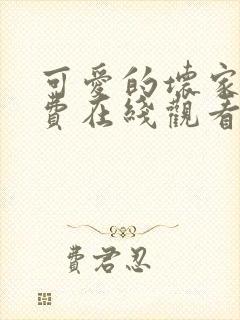 可愛的壞家
費在綫觀看
費君忍